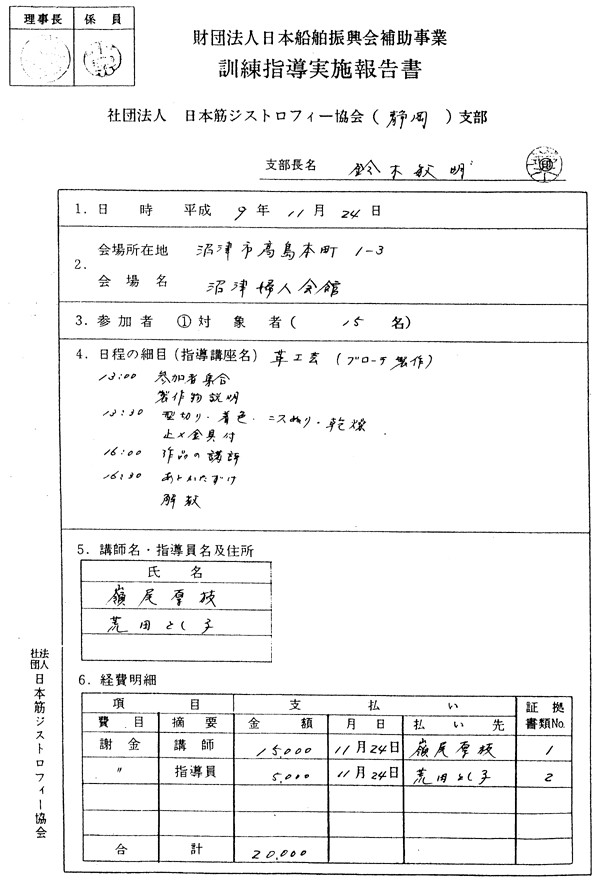 理事長 係員
財団法人日本船舶振興会補助事業
訓練指導実施報告書
社団法人 日本筋ジストロフィー協会(静岡)支部
支部長名 鈴木敏明
1. 日 時 平成 9年 11月 24日
2. 会場所在地 沼津市高島本町 1-3
会場名 沼津婦人会館
3. 参加者 ①対象者( 15名)
4. 日程の細目(指導講座名) 革工芸 (ブローチ製作)
13:00 参加者集合
製作物説明
13:30 型切り・着色・ニスぬり・乾燥
止メ金具付
16:00 作品の講評
16:30 あとかたずけ
解散
5. 講師名・指導員名及住所
氏名
嶺尾厚枝
荒田とし子
6. 経費明細
項目 支払い 証拠書類No.
費目 摘要 金額 月日 払い先
謝金 講師 15,000 11月24日 嶺尾厚枝 1
〃 指導員 5,000 11月24日 荒田とし子 2
合計 20,000
社団法人 日本筋ジストロフィー協会